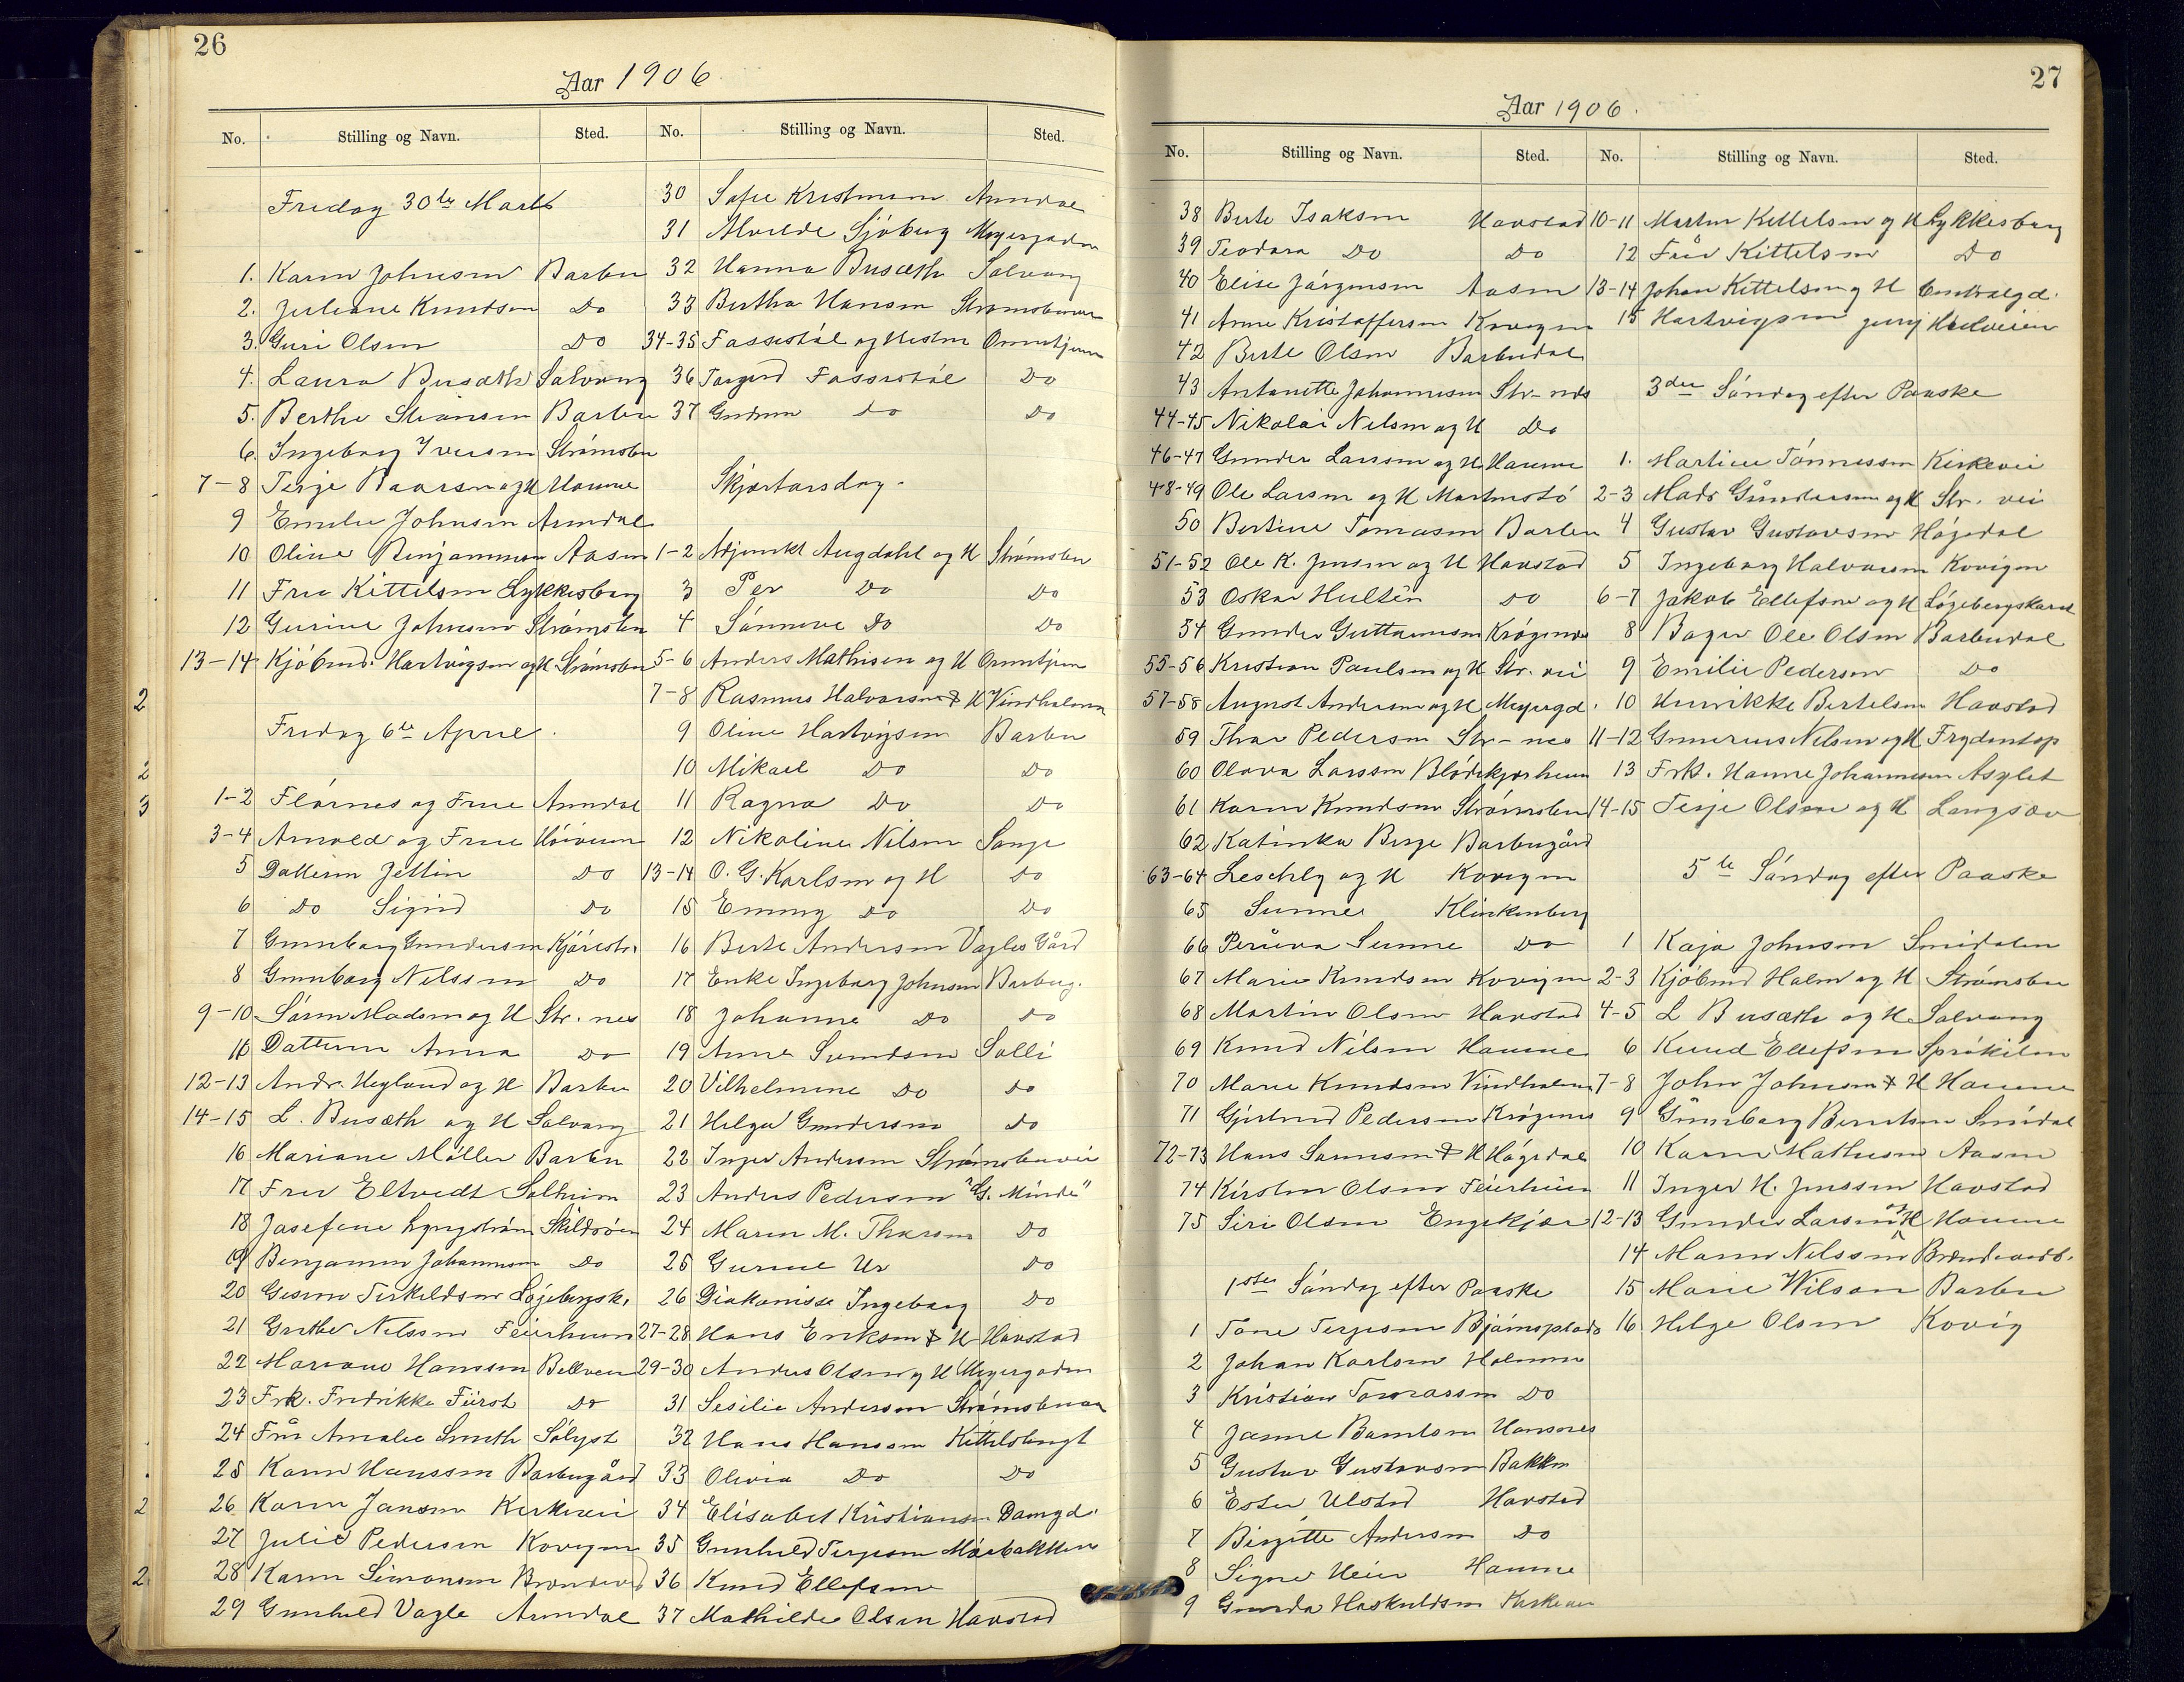 26
Aar 1906
No. Stilling og Navn. Sted.
Fredag 30te Marts
1. Karen Johnsen Barbu
2. Juliane Knudsen Do
3. Guri Olsen Do
4. Laura Busæth Solvang
5. Berthe Barbu
6. Ingeborg Iversen Strømsbu
7-8 Terje og H Havne
9 Emilie Johnsen Arendal
10 Oline Benjaminsen Aasen
11 Fru Kittelsen Lykkesborg
12 Gurine Johnsen Strømsbu
13-14 Kjøbmd. Hartvigsen og H Strømsbu
Fredag 6te April.
1-2 Flørnes og Frue Arendal
3-4 Arnold og Frue
5 Datteren Do
6 Do Sigrid Do
7 Gunborg Gundersen
8 Gunborg Nilssen Do
9-10 Søren Madsen og H Str. nes
11 Datteren Anna Do
12-13 Andr. Heyland og H Barbu
14-15 L. Busæth og H Solvang
16 Mariane Møller Barbu
17 Fru Eltvedt Solheim
18 Josefine Lyngstrøm
19 Benjamin Johannesen Do
20 Terkeldsen Løjebergsk.
21 Grethe Nelssen Feierheien
22 Hanssen
23 Frk. Fredrikke Fürst Do
24 Fru Amalie Smith Sølyst
25 Karen Hanssen Barbugård
26 Karen Jansen Kirkevei
27 Julie Pedersen Kovigen
28 Karen Simonsen
29 Gunhild Vagle Arendal
No. Stilling og Navn. Sted.
30 Sofie Kristensen Arendal
31 Alvilde Sjøberg Meyergaden
32 Hanna Busæth Solvang
33 Bertha Hansen
34-35 Fossestøl og Hustru
36 Torgerd Fossestøl Do
37 Gudrun Do Do
Skjærtorsdag.
1-2 Adjunkt Augdahl og H Strømsbu
3 Per Do Do
4 Sønneve Do Do
5-6 Anders Mathisen og H
7-8 Rasmus Halvorsen & H Vindholmen
9 Oline Hartvigsen Barbu
10 Mikael Do Do
11 Ragna Do Do
12 Nikoline Nilsen Songe
13-14 O. G. Karlsen og H Do
15 Emmy Do Do
16 Berte Andersen Vagles Gård
17 Enke Ingeborg Johnsen Barbug.
18 Johanne Do Do
19 Anne Svendsen Solli
20 Vilhelmine Do Do
21 Helga Gundersen Do
22 Inger Andersen Strømsbuvei
23 Anders Pedersen "Gl. Minde"
24 Maren M. Thorsen Do
25 Gurine Ur Do
26 Diakonisse Ingeborg Do
27-28 Hans Eriksen & H Havstad
29-30 Anders Olsen og H Meyergaden
31 Sesilie Andersen
32 Hans Hanssen Kittelsbugt
33 Olivia Do Do
34 Elisabet Kristiansen Damgd.
35 Gunhild Terjesen Mærbakken
36 Knud Ellefsen
37 Mathilde Olsen Havstad
27
Aar 1906.
No. Stilling og Navn. Sted.
38 Berte Isaksen Havstad
39 Teodora Do Do
40 Elise Jørgensen Aasen
41 Anne Kristoffersen Kovigen
42 Berte Olsen Barbudal
43 Antonette Johannesen Str-nes
44-45 Nikolai Nelsen og H Do
46-47 Gunder Larssen og H Havne
48-49 Ole Larsen og H
50 Bertine Tomasen Barbu
51-52 Ole K. Jensen og H Havstad
53 Oskar Hultén Do
54 Gunder Guttormsen Krøgenes
55-56 Kristian Paulsen og H Str. vei
57-58 August Andersen og H Meyergd.
59 Thor Pedersen Str-nes
60 Olava Larssen Blødekjærheien
61 Karen Knudsen Strømsbu
62 Katinka Berge Barbugård
63-64 og H Kovigen
65 Sunne Klinkenberg
66 Sunne Do
67 Marie Knudsen Kovigen
68 Martin Olsen Havstad
69 Knud Nilsen Havne
70 Marie Knudsen Vindholmen
71 Gjertrud Pedersen Krøgenes
72-73 Hans & H Høgedal
74 Kirsten Olsen Feierheien
75 Siri Olsen Engekjær
1ste Søndag efter Paaske
1 Tone Terjesen
2 Johan Karlsen Holmen
3 Kristian Tomassen Do
4 Janne
5 Gustav Gustavsen Bakken
6 Ester Ulstad Havstad
7 Birgitte Andersen Do
8 Signe Heier Havne
9 Gunda Haskuldsen Kirkevei
No. Stilling og Navn. Sted.
10-11 Martin Kittelsen og H Lykkesborg
12 Fru Kittelsen Do
13-14 Johan Kittelsen og H Centralgd.
15 Hartvigsen jung
3die Søndag efter Paaske
1. Martine Tønnessen Kirkevei
2-3 Mads Gundersen og H Str. vei
4 Gustav Gustavsen Høgedal
5 Ingeborg Halvorsen Kovigen
6-7 Jakob Ellefsen og H Løgebergskaret
8 Bager Ole Olsen Barbudal
9 Emilie Pedersen Do
10 Henrikke Bertelsen Havstad
11-12 Gunerius Nelsen og H Frydentop
13 Frk. Hanne Johannesen Asylet
14-15 Terje Olsen og H Langsæv
5te Søndag efter Paaske
1 Kaja Johnsen Smidalen
2-3 Kjøbmd Holm og H Strømsbu
4-5 L Busæth og H Solvang
6 Knud Ellefsen
7-8 John Johnsen & H Havne
9 Gunborg Berntsen Smidal
10 Karen Mathisen Aasen
11 Inger H. Jenssen Havstad
12-13 Gunder Larsen og H Havne
14 Maren Nelssen
15 Marie Wilson Barbu
16 Helge Olsen Kovig
2
2
3
2
2